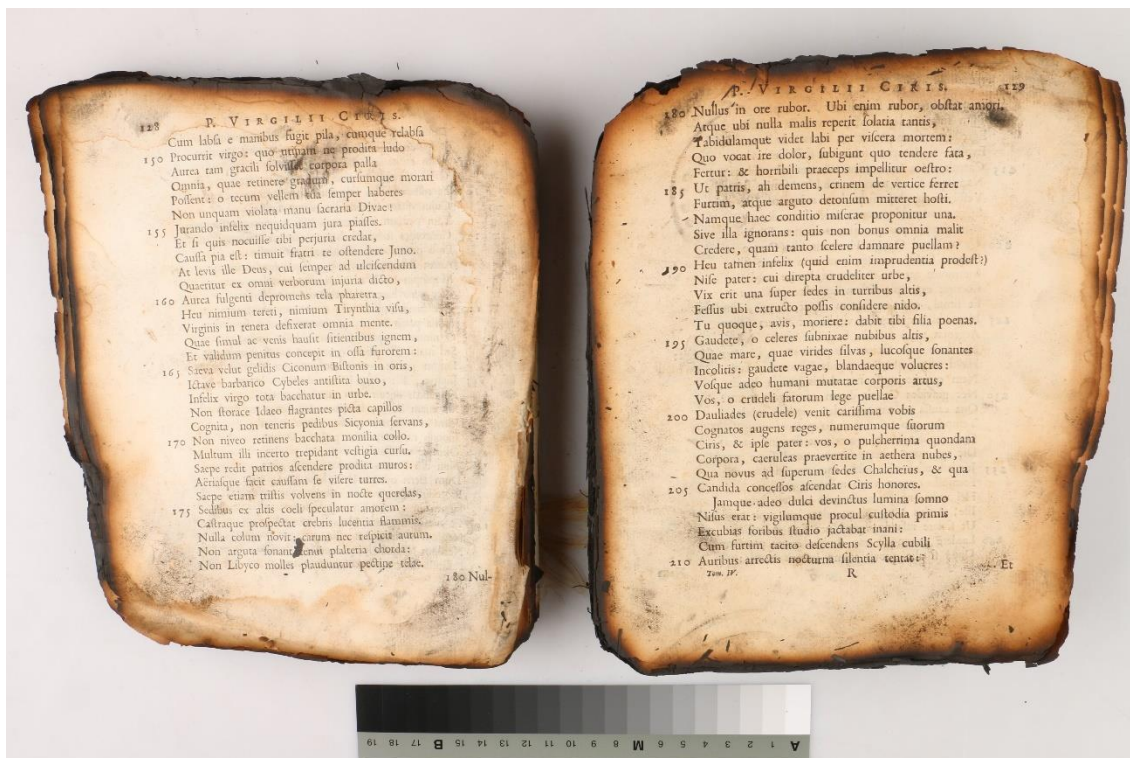 128 P. VIRGILII CIRIS.
Cum labſa e manibus fugit pila, cumque relabſa
150 Procurrit virgo: quo utinam ne prodita ludo
Aurea tam gracili ſolviſſet corpora palla
Omnia, quae retinere gradum, curſumque morari
Poſſent: o tecum vellem tua ſemper haberes
Non unquam violata manu ſacraria Divae!
155 Jurando infelix nequidquam jura piaſſes.
Et ſi quis nocuiſſe tibi perjuria credat,
Cauſſa pia eſt: timuit fratri te oſtendere Juno.
At levis ille Deus, cui ſemper ad ulciſcendum
Quaeritur ex omni verborum injuria dicto,
160 Aurea fulgenti depromens tela pharetra,
Heu nimium tereti, nimium Tirynthia viſu,
Virginis in tenera defixerat omnia mente.
Quae ſimul ac venis hauſit ſitientibus ignem,
Et validum penitus concepit in oſſa furorem:
165 Saeva velut gelidis Ciconum Biſtonis in oris,
Ictave barbarico Cybeles antiſtita buxo,
Infelix virgo tota bacchatur in urbe.
Non ſtorace Idaeo flagrantes picta capillos
Cognita, non teneris pedibus Sicyonia ſervans,
170 Non niveo retinens bacchata monilia collo.
Multum illi incerto trepidant veſtigia curſu.
Saepe redit patrios aſcendere prodita muros:
Aëriaſque facit cauſſam ſe viſere turres.
Saepe etiam triſtis volvens in nocte querelas,
175 Sedibus ex altis coeli ſpeculatur amorem:
Caſtraque proſpectat crebris lucentia flammis.
Nulla colum novit: carum nec reſpicit aurum.
Non arguta ſonant tenui pſalteria chorda:
Non Libyco molles plauduntur pectine telae.
180 Nul-
P. VIRGILII CIRIS. 129
180 Nullus in ore rubor. Ubi enim rubor, obſtat amori.
Atque ubi nulla malis reperit ſolatia tantis,
Tabidulamque videt labi per viſcera mortem:
Quo vocat ire dolor, ſubigunt quo tendere fata,
Fertur: & horribili praeceps impellitur oeſtro:
185 Ut patris, ah demens, crinem de vertice ferret
Furtim, atque arguto detonſum mitteret hoſti.
Namque haec conditio miſerae proponitur una.
Sive illa ignorans: quis non bonus omnia malit
Credere, quam tanto ſcelere damnare puellam?
190 Heu tamen infelix (quid enim imprudentia prodeſt?)
Niſe pater: cui direpta crudeliter urbe,
Vix erit una ſuper ſedes in turribus altis,
Feſſus ubi extructo poſſis conſidere nido.
Tu quoque, avis, moriere: dabit tibi filia poenas.
195 Gaudete, o celeres ſubnixae nubibus altis,
Quae mare, quae virides ſilvas, lucoſque ſonantes
Incolitis: gaudete vagae, blandaeque volucres:
Voſque adeo humani mutatae corporis artus,
Vos, o crudeli fatorum lege puellae
200 Dauliades (crudele) venit cariſſima vobis
Cognatos augens reges, numerumque ſuorum
Ciris, & ipſe pater: vos, o pulcherrima quondam
Corpora, caeruleas praevertite in aethera nubes,
Qua novus ad ſuperum ſedes Chalcheïus, & qua
205 Candida conceſſos aſcendat Ciris honores.
Jamque adeo dulci devinctus lumina ſomno
Niſus erat: vigilumque procul cuſtodia primis
Excubias foribus ſtudio jactabat inani:
Cum furtim tacito deſcendens Scylla cubili
210 Auribus arrectis nocturna ſilentia tentat:
Tom. IV. R Et
A 1 2 3 4 5 6 M 8 9 10 11 12 13 14 15 B 17 18 19